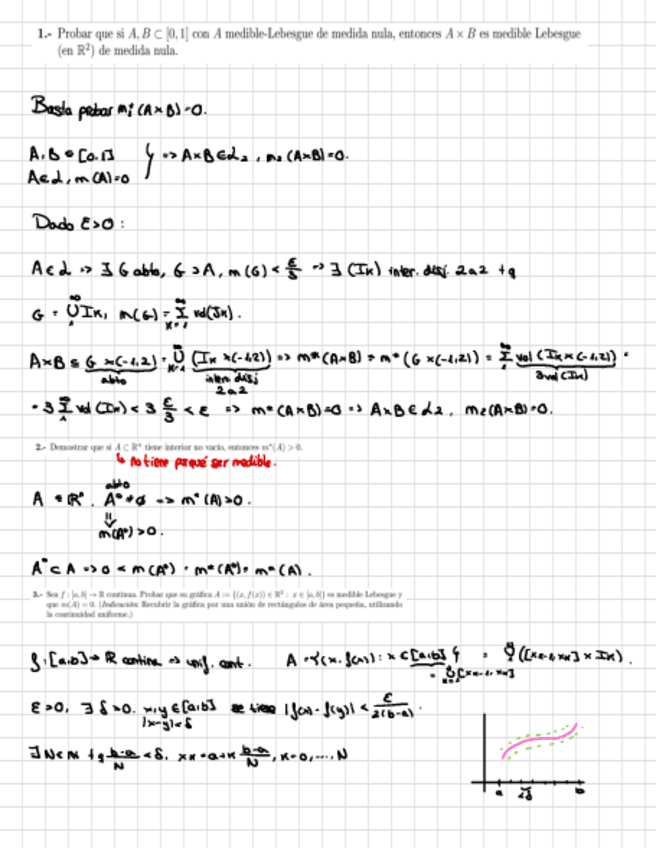 1.- Probar que si A, B ⊂ [0, 1] con A medible-Lebesgue de medida nula, entonces A × B es medible Lebesgue
(en ℝ²) de medida nula.
Basta probar m₂*(A×B)=0.
A, B ⊂ [0,1] } => A×B ∈ L₂, m₂(A×B)=0.
A∈L, m(A)=0
Dado ε>0:
A∈L => ∃ G abto, G ⊃ A, m(G) < ε/3 => ∃ (Iκ) inter. disj. 2a2 tq
G = ∪Iκ, m(G) = Σ vol(Iκ).
A×B ⊆ G ×(-1,2) = ∪ (Iκ ×(-1,2)) => m*(A×B) ≤ m*(G ×(-1,2)) = Σ vol (Iκ×(-1,2)) =
abto inter. disj 3vol(Iκ)
2a2
= 3 Σ vol (Iκ) < 3 ε/3 < ε => m*(A×B)=0 => A×B∈L₂, m₂(A×B)=0.
2.- Demostrar que si A ⊂ ℝⁿ tiene interior no vacío, entonces m*(A) > 0.
↳ no tiene porqué ser medible.
abto
A ⊂ ℝⁿ. A°≠∅ => m*(A)>0.
⇓
m(A°)>0.
A°⊂A => 0 < m(A°) = m*(A°) ≤ m*(A).
3.- Sea f : [a, b] → ℝ continua. Probar que su gráfica A := {(x, f(x)) ∈ ℝ² : x ∈ [a, b]} es medible Lebesgue y
que m(A) = 0. (Indicación: Recubrir la gráfica por una unión de rectángulos de área pequeña, utilizando
la continuidad uniforme.)
f:[a,b]→ℝ continua => unif. cont. A = {(x, f(x)) : x∈[a,b]} = ∪([xκ-1, xκ] × Iκ).
= ∪[xκ-1, xκ]
ε>0, ∃ δ>0. x,y∈[a,b] se tiene |f(x)-f(y)| < ε/2(b-a).
|x-y|<δ
∃ N∈ℕ tq b-a/N < δ. xκ = a+κ b-a/N, κ=0,...,N
a b